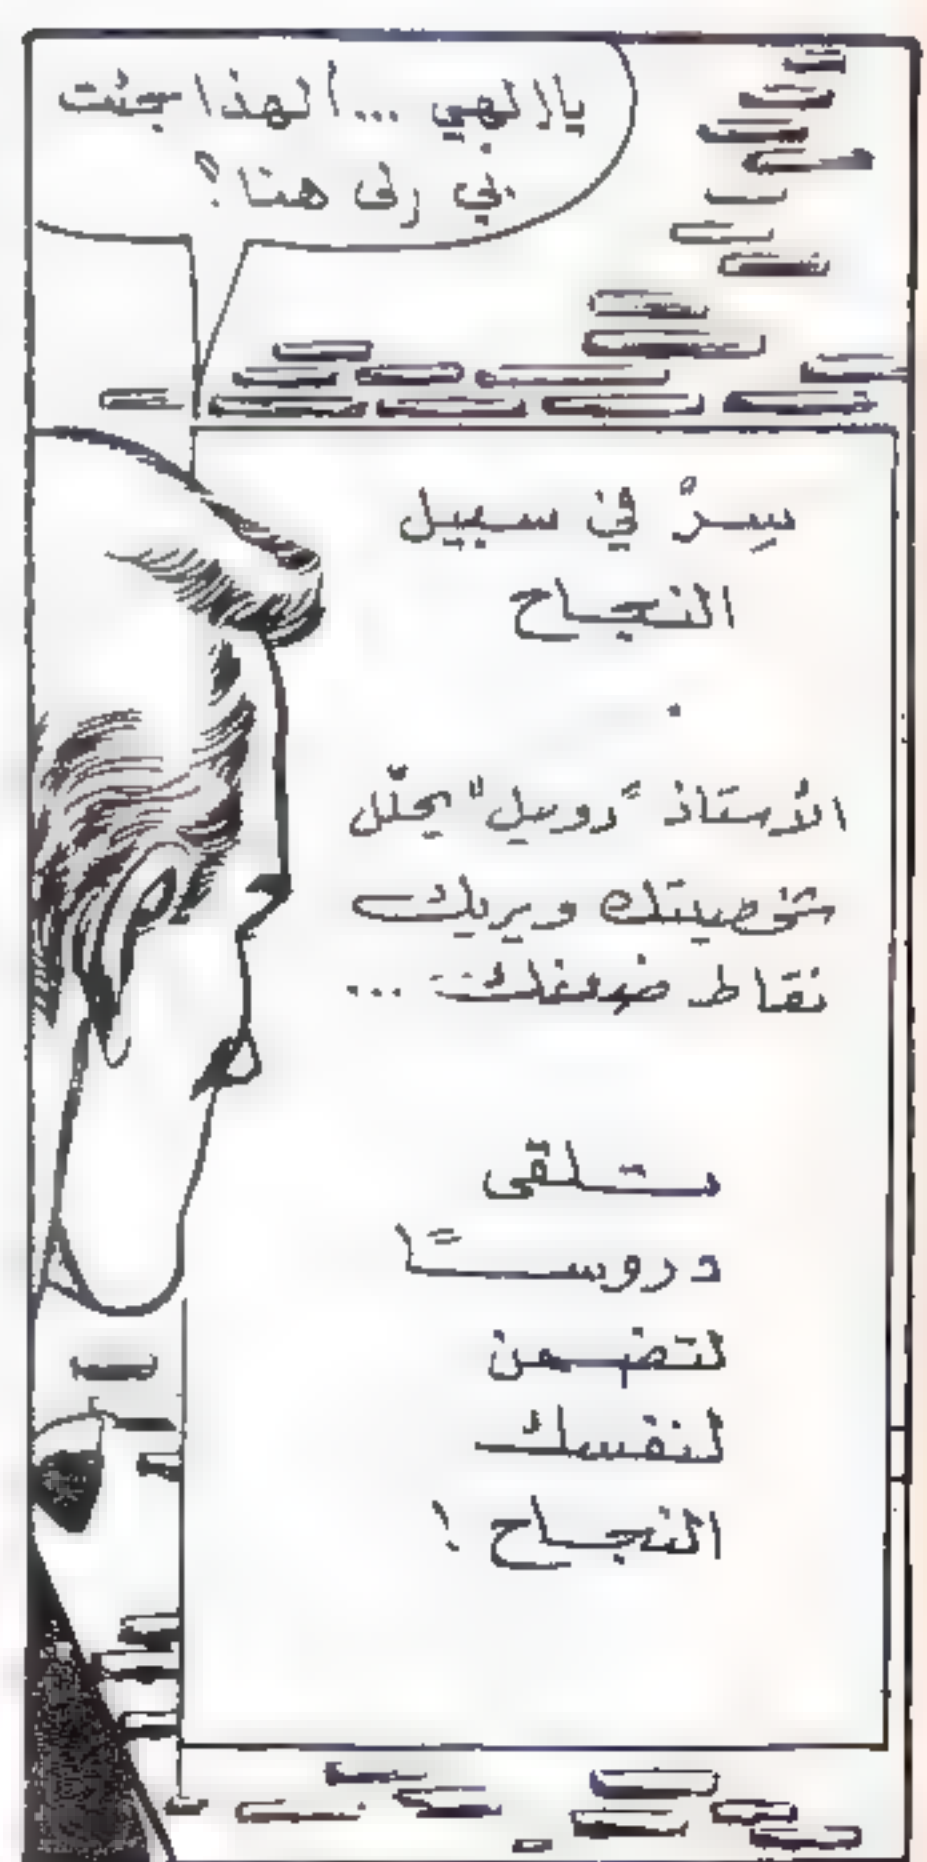 يا إلهي ... ألهذا جئت
بي إلى هنا؟
سِرْ في سبيل
النجاح
الأستاذ "روسل" يحلّل
شخصيتك ويريك
نقاط ضعفك ...
تلقى
دروسًا
لتضمن
لنفسك
النجاح !